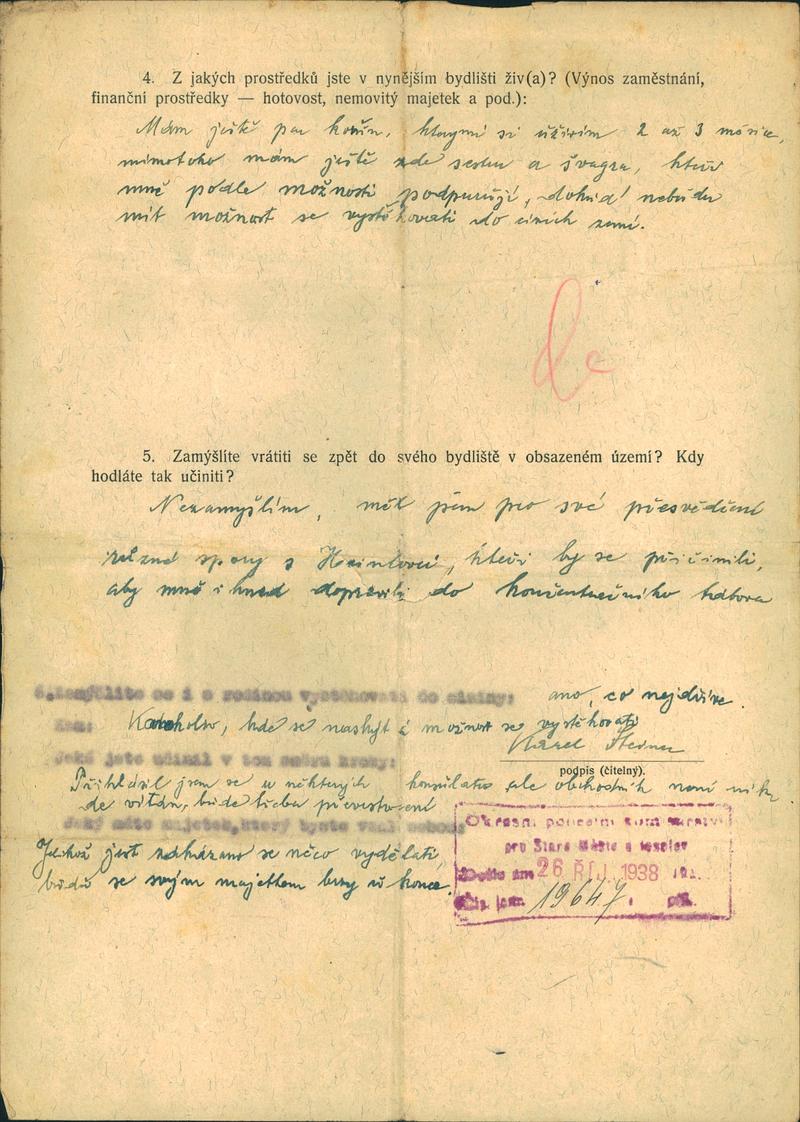 4. Z jakých prostředků jste v nynějším bydlišti živ(a)? (Výnos zaměstnání,
finanční prostředky — hotovost, nemovitý majetek a pod.):
Mám ještě par korun, kterými si uživím 2 až 3 měsíce,
mimotoho mám ještě zde sestru a švagra, kteří
mně podle možnosti podpurují, dokud nebudu
mít možnost se vystěhovati do cizích zemí.
5. Zamýšlíte vrátiti se zpět do svého bydliště v obsazeném území? Kdy
hodláte tak učiniti?
Nezamyšlím, měl jsem pro své přesvědčení
různé spory s Heinlovci, kteří by se přičinili,
aby mně ihned dopravili do koncentračního tábora
6. Zamýšlíte se i s rodinou vystěhovati do ciziny: ano, co nejdříve.
Kam: Kamkoliv, kde se naskýtá možnost se vystěhovati
Karel Steiner
Jaké jste učinil v tom směru kroky:
podpis (čitelný).
Přihlásil jsem se u některých konsulatů ale obchodník není nikde
vítán, bude třeba
Jaký máte majetek, který byste vzal sebou:
Jelikož jest zakázano se něco vydělati,
budu se svým majetkem brzy u konce.
Okresní policejní komisařství
pro Staré Město a Josefov
Došlo dne 26. ŘÍJ. 1938
Čís. jedn. 19647